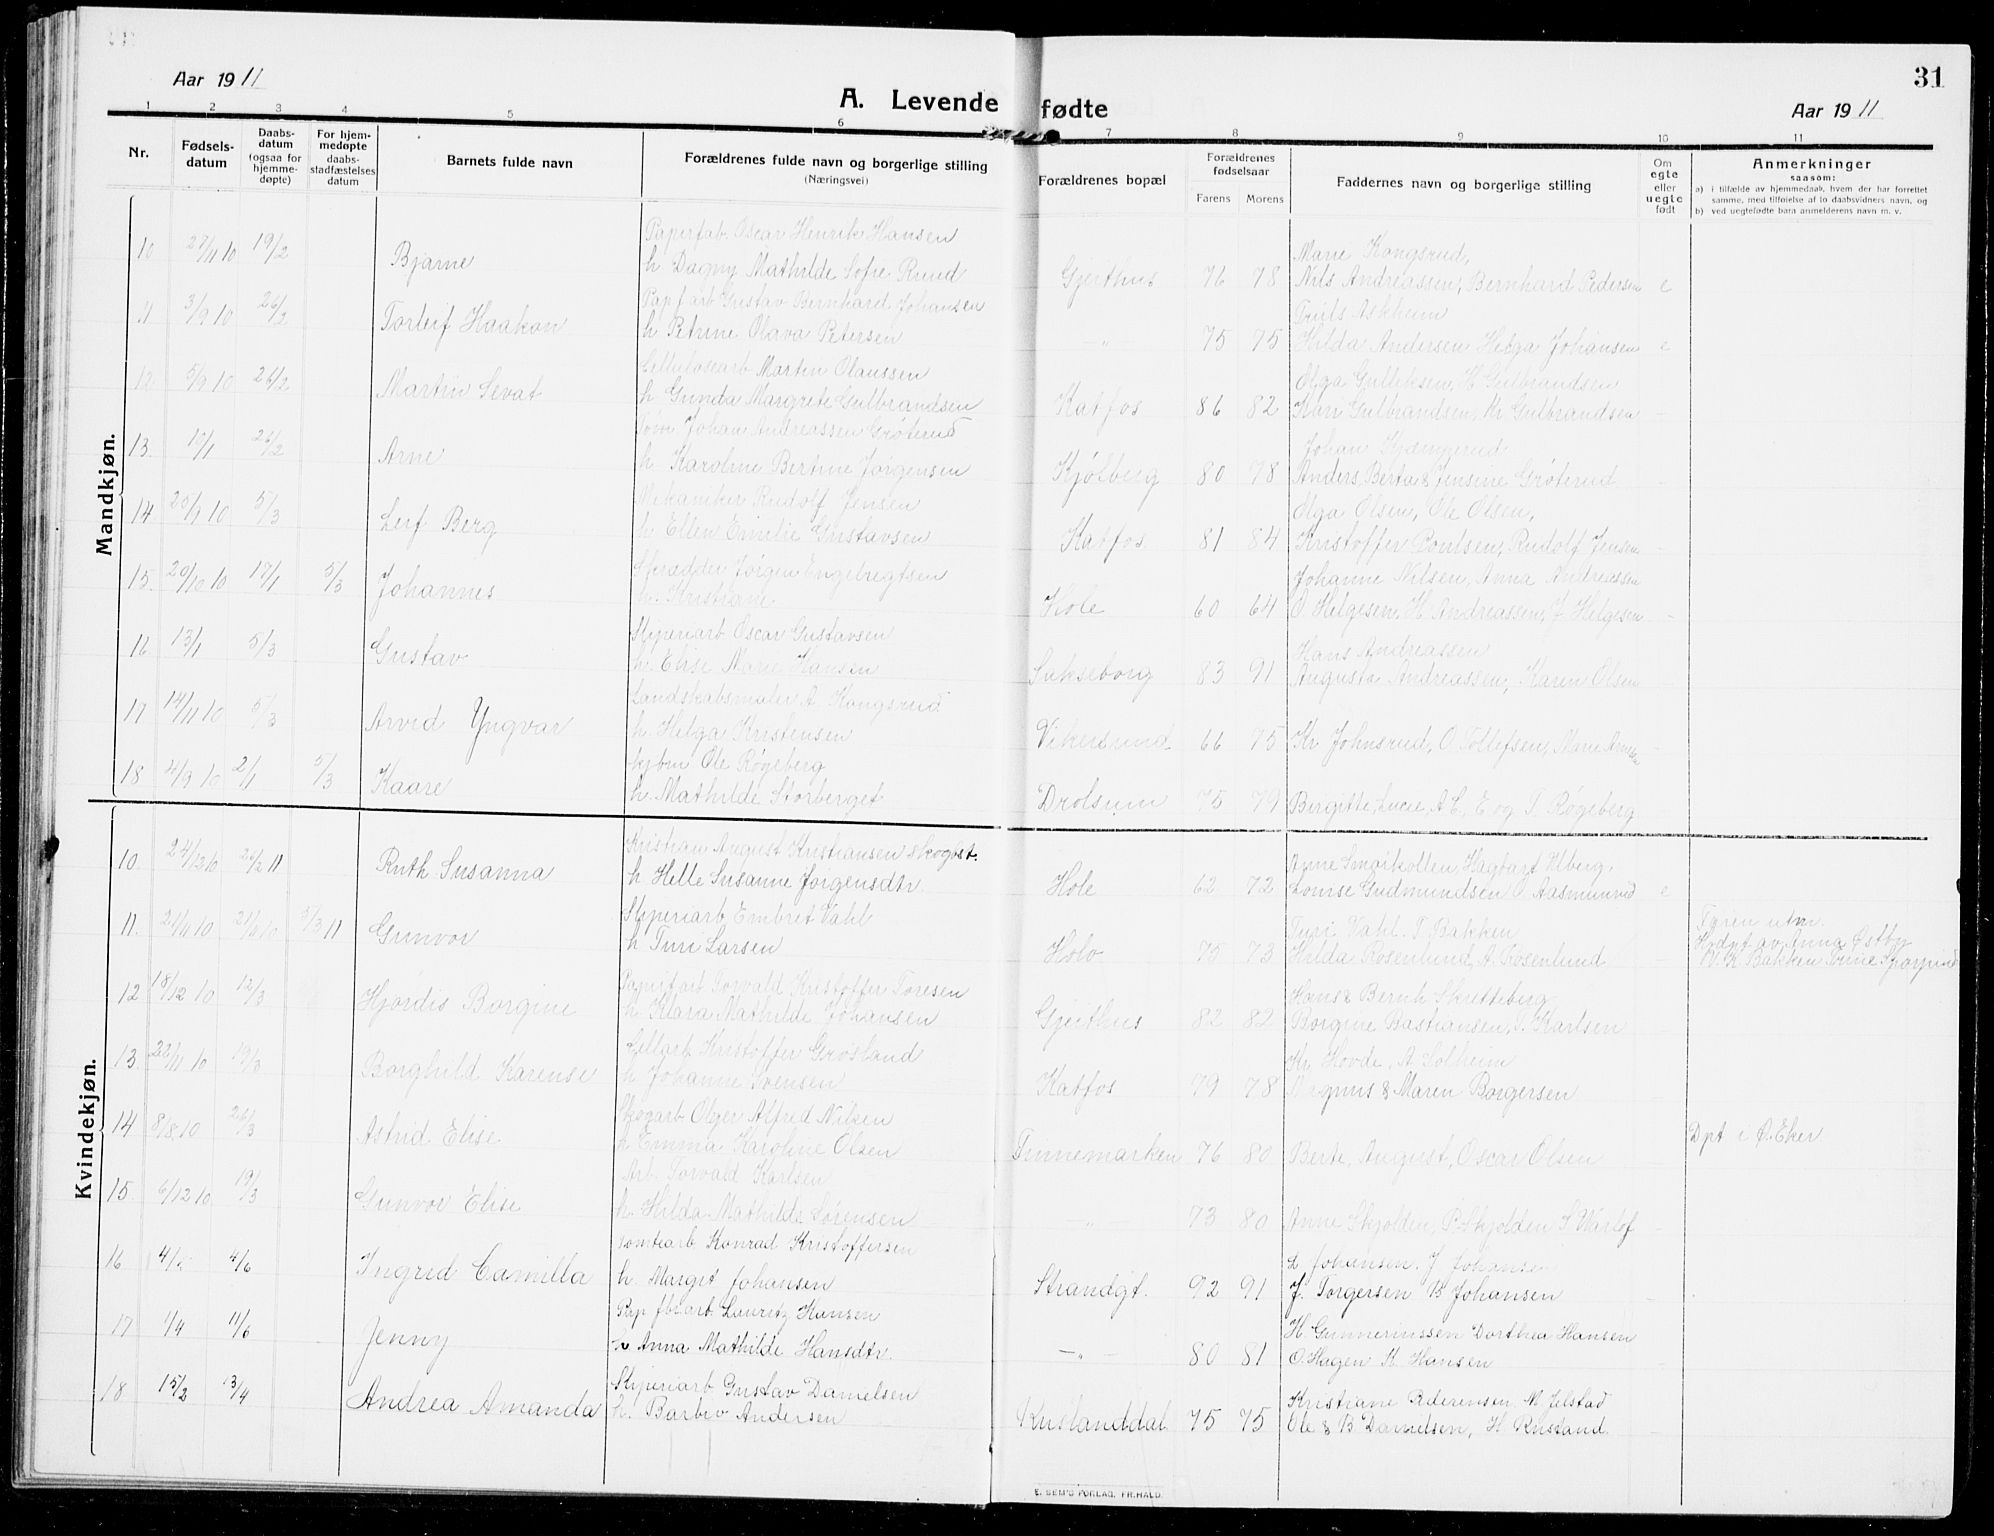 Aar 1911
A. Levende fødte
Aar 1911
31
1 2 3 4 5 6 7 8 9 10 11
Nr.
Fødselsdatum
Daabsdatum (ogsaa for hjemmedøpte)
For hjemmedøpte daabsstadfæstelses datum
Barnets fulde navn
Forældrenes fulde navn og borgerlige stilling
(Næringsvei)
Forældrenes bopæl
Forældrenes fødselsaar
Farens Morens
Faddernes navn og borgerlige stilling
Om egte eller uegte født
Anmerkninger
saasom:
a) i tilfælde av hjemmedaab, hvem der har forrettet samme, med tilføielse af to daabsvidners navn, og
b) ved uegtefødte barn anmelderens navn m. v.
Mandkjøn.
10 27/11 10 19/2 Bjarne
Paperfab. Oscar Henrik Hansen
h Dagny Mathilde Sofie Ruud
Gjeithus 76 78
Marie Kongsrud,
Nils Andreassen, Bernhard Pedersen e
11 3/9 10 26/2 Torleif Haakon
Papfarb Gustav Bernhard Johansen
h Petrine Olava Petersen
-"- 75 75
Truls Askheim
Hilda Andersen Helga Johansen e
12 5/9 10 26/2 Martin Sevat
Cellulosearb Martin Olaussen
h Gunda Margrete Gulbrandsen
Katfos 86 82
Olga Gulliksen, H Gulbrandsen
Kari Gulbrandsen, Kr Gulbrandsen -
13 10/1 26/2 Arne
Tøm Johan Andreassen Grøterud
h Karoline Bertine Jørgensen
Kjølberg 80 78
Johan
Anders, Berta & Jensine Grøterud -
14 5/3 Leif Berg
Mekaniker Rudolf Jensen
h Ellen Emilie Gustavsen
Katfos 81 84
Olga Olsen, Ole Olsen,
Kristoffer Poulsen, Rudolf Jensen -
15 20/10 10 17/1 5/3 Johannes
Jørgen Engebregtsen
h. Kristiane
Hole 60 64
Johanne Nilsen, Anna Andreassen
O Helgesen, H Andreassen, J Helgesen -
16 13/1 5/3 Gustav
Sliperiarb Oscar Gustavsen
h. Elise Marie Hansen
83 91
Hans Andreassen
Augusta Andreassen, Karen Olsen -
17 14/11 10 5/3 Arvid Yngvar
Landskabsmaler A. Kongsrud
h. Helga Kristensen
Vikersund 66 75
Kr Johnsrud, O Tollefsen, Marie -
18 4/9 10 2/1 5/3 Kaare
Ole Røgeberg
h. Mathilde Storberget
Drolsum 75 79
Birgitte, Lucie, A C, E og T. Røgeberg
Kvindekjøn.
10 24/12 10 26/2 11 Ruth Susanna
Kristian August Kristiansen skogbst.
h Helle Susanne Jørgensdtr.
Hole 62 72
Anne Smørkollen, Hagbart Ulberg,
Lovise Gudmundsen O Aasmunrud e
11. 21/11 10 5/3 11 Gunvor
Sliperiarb Embret Vahl
h Turi Larsen
Holo 75 73
Turi Vahl. T Bakken
Hilda Rosenlund, A. Rosenlund
Hjdpt av Anna Østby
12 18/12 10 12/3 Hjørdis Borgine
Papirfarb Torvald Kristoffer Toresen
h Klara Mathilde Johansen
Gjeithus 82 82
Hans & Bernh Skretteberg
Borgine Bastiansen, T. Karlsen -
13 22/11 10 19/3 Borghild Karense
Cellarb Kristoffer Grøsland
h Johanne Svensen
Katfos 79 78
Kr. Hovde, A. Solheim
Magnus & Maren Borgersen -
14 8/8 10 26/3 Astrid Elise
Skogarb Olger Alfred Nilsen
h Emma Karoline Olsen
Finnemarken 76 80
Berte, August, Oscar Olsen -
Dpt i Ø. Eker
15 6/12 10 19/3 Gunvor Elise
Arb. Torvald Karlsen
h. Hilda Mathilde Sørensen
-"- 73 80
Anne Skjolden, P. Skjolden S Warlof -
16 4/6 Ingrid Camilla
Tomtearb Konrad Kristoffersen
h. Margit Johansen
Strandgt. 92 91
L Johansen. J Johansen
J. Torgersen B Johansen
17 1/4 11/6 Jenny
Pap fbrarb. Lauritz Hansen
h Anna Mathilde Hansdtr.
-"- 80 81
H. Gunneriussen Dorthea Hansen
O. Hagen K Hansen
18 15/2 Andrea Amanda
Sliperiarb Gustav Danielsen
h. Barbro Andersen
75 75
Kristiane Pedersen. M. Ulstad
Ole & B Danielsen, H Rustand.
E. SEM'S FORLAG. FR.HALD.